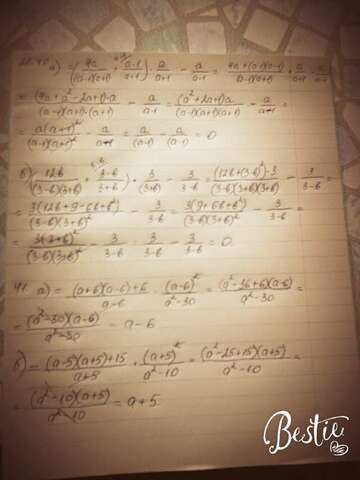 a) = (4a/(a-1)(a+1) + a-1/a+1) · a/a+1 - a/a-1 = 4a+(a-1)(a-1)/(a-1)(a+1) · a/a+1 -
= (4a+a²-2a+1)·a/(a-1)(a+1)·(a+1) - a/a-1 = (a²+2a+1)a/(a-1)(a+1)(a+1) - a/a-1 =
= a(a+1)²/(a-1)(a+1)² - a/a-1 = a/(a-1) - a/(a-1) = 0
б) (12b/(3-b)(3+b) + 3-b/3+b) · 3/(3+b) - 3/3-b = (12b+(3-b)²)·3/(3-b)(3+b)(3+b) - 3/3-b =
= 3(12b+9-6b+b²)/(3-b)(3+b)² - 3/3-b = 3(9+6b+b²)/(3-b)(3+b)² - 3/3-b =
= 3(3+b)²/(3-b)(3+b)² - 3/3-b = 3/3-b - 3/3-b = 0
41. a) = (a+6)(a-6)+6/a-6 · (a-6)²/a²-30 = (a²-36+6)(a-6)/a²-30 =
= (a²-30)(a-6)/a²-30 = a-6
б) = (a-5)(a+5)+15/a+5 · (a+5)²/a²-10 = (a²-25+15)(a+5)/a²-10 =
= (a²-10)(a+5)/a²-10 = a+5
Bestie